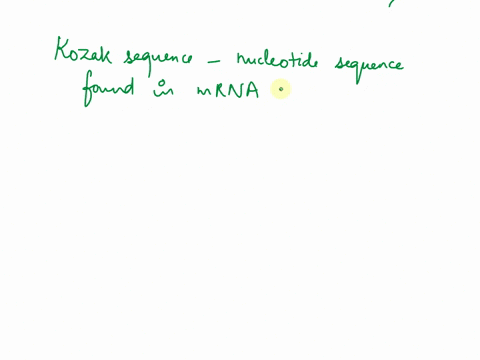 Kozak sequence - nucleotide sequence
found in mRNA